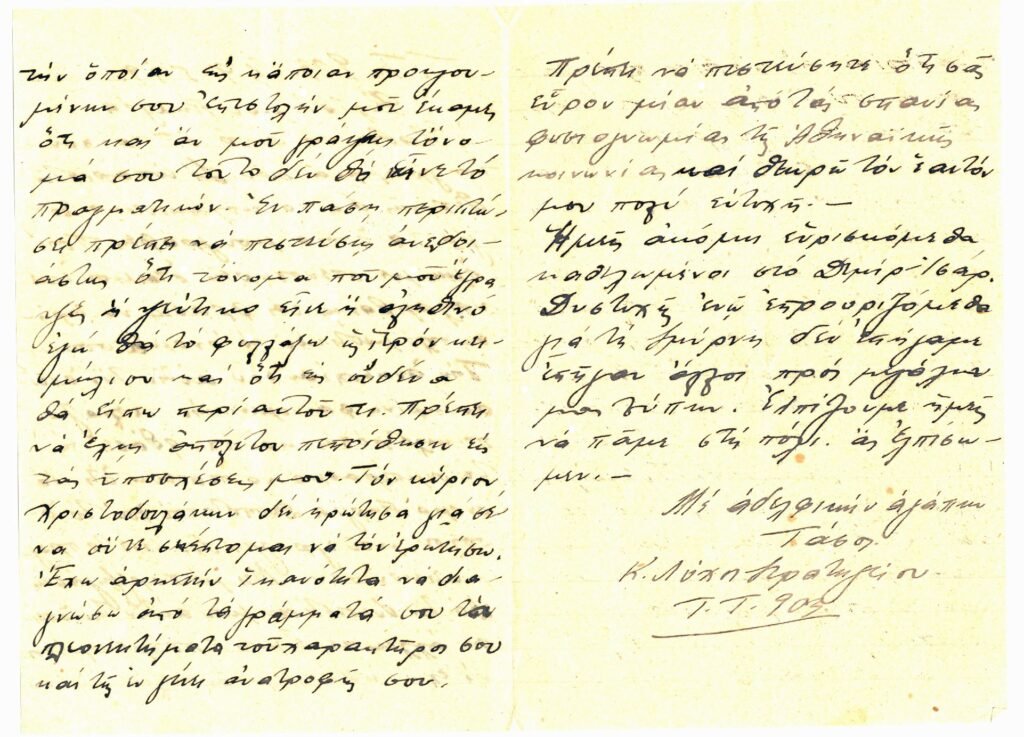 τὴν ὁποίαν εἰς κἄποιαν προηγου-
μένην σου ἐπιστολήν μοῦ ἔκαμες
ὅτι καὶ ἂν μοῦ γράψῃς τὄνο-
μά σου τοῦτο δὲν θὰ εἶνε τὸ
πραγματικόν. Ἐν πάσῃ περιπτώ-
σει πρέπει νὰ πιστεύσῃς ἀνενδοι-
άστως ὅτι τὄνομα ποῦ μοῦ ἔγρα
ψες ἢ ψεύτικο εἶνε ἢ ἀληθινό
ἐγὼ θὰ τὸ φυλλάξω ὡς ἱερόν κει-
μήλιον καὶ ὅτι εἰς οὐδένα
θὰ εἴπω περὶ αὐτοῦ τι. Πρέπει
νὰ ἔχῃς ἀπόλυτον πεποίθησιν εἰς
τὰς ὑποσχέσεις μου. Τὸν κύριον
Χριστοδουλάκην δὲν ἠρώτησα γιὰ σέ
να οὔτε σκέπτομαι νὰ τὸν ἐρωτήσω.
Ἔχω ἀρκετὴν ἱκανότητα νὰ δια-
γνώσω ἀπὸ τὰ γράμματά σου τὰ
πλεονεκτήματα τοῦ χαρακτῆρος σου
καὶ τῆς ἐν γένει ἀνατροφῆς σου.
Πρέπει νὰ πιστεύσητε ὅτι σᾶς
εὗρον μίαν ἀπὸ τὰς σπανίας
φυσιογνωμίας τῆς Ἀθηναϊκῆς
κοινωνίας καὶ θεωρῶ τὸν ἑαυτόν
μου πολὺ εὐτυχῆ. —
Ἡμεῖς ἀκόμη εὑρισκόμεθα
καθηλωμένοι στὸ Δεμίρ-Ἰσάρ.
Δυστυχῶς ἐνῷ ἐπροωριζόμεθα
γιὰ τὴ Σμύρνη δὲν ἐπήγαμε
ἐπῆγαν ἄλλοι πρὸς μεγάλην
μας λύπην. Ἐλπίζουμε ἡμεῖς
νὰ πᾶμε στὴ πόλι. ἂς ἐλπίσω-
μεν. —
Μὲ ἀδελφικὴν ἀγάπην
Τάσος
Κ. Λόχος Στρατηγείου
Τ.Τ. 905